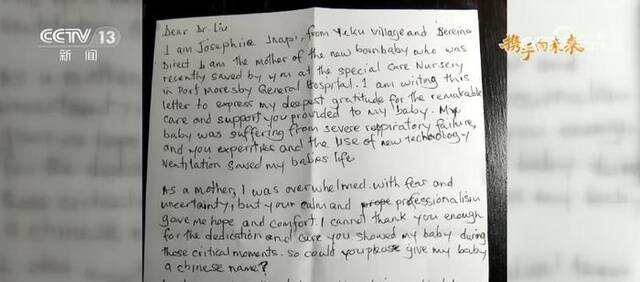 CCTV 13
新闻
携手向未来
Dear Dr. Liu
I am Josephine Inapi, from Yeku village and Bereina
Direct. I am the mother of the new born baby who was
recently saved by you at the special care Nursery
in Port Moresby General Hospital. I am writing this
letter to express my deepest gratitude for the remarkable
care and support you provided to my baby. My
baby was suffering from severe respiratory failure,
and you experties and the use of new technology
ventilation saved my babies life.
As a mother, I was overwhelmed with fear and
uncertainty, but your calm and professionalism
gave me hope and comfort. I cannot thank you enough
for the dedication and care you showed my baby during
those critical moments. So could you please give my baby
a chinese name?